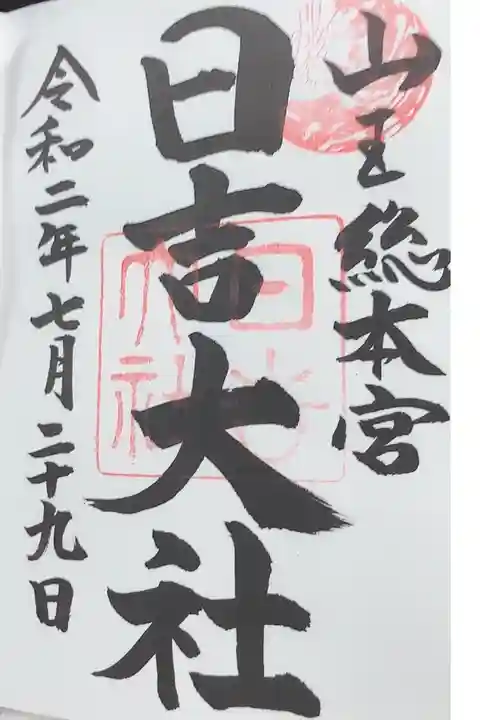 山王総本宮
日吉大社
日吉大社
令和二年七月二十九日